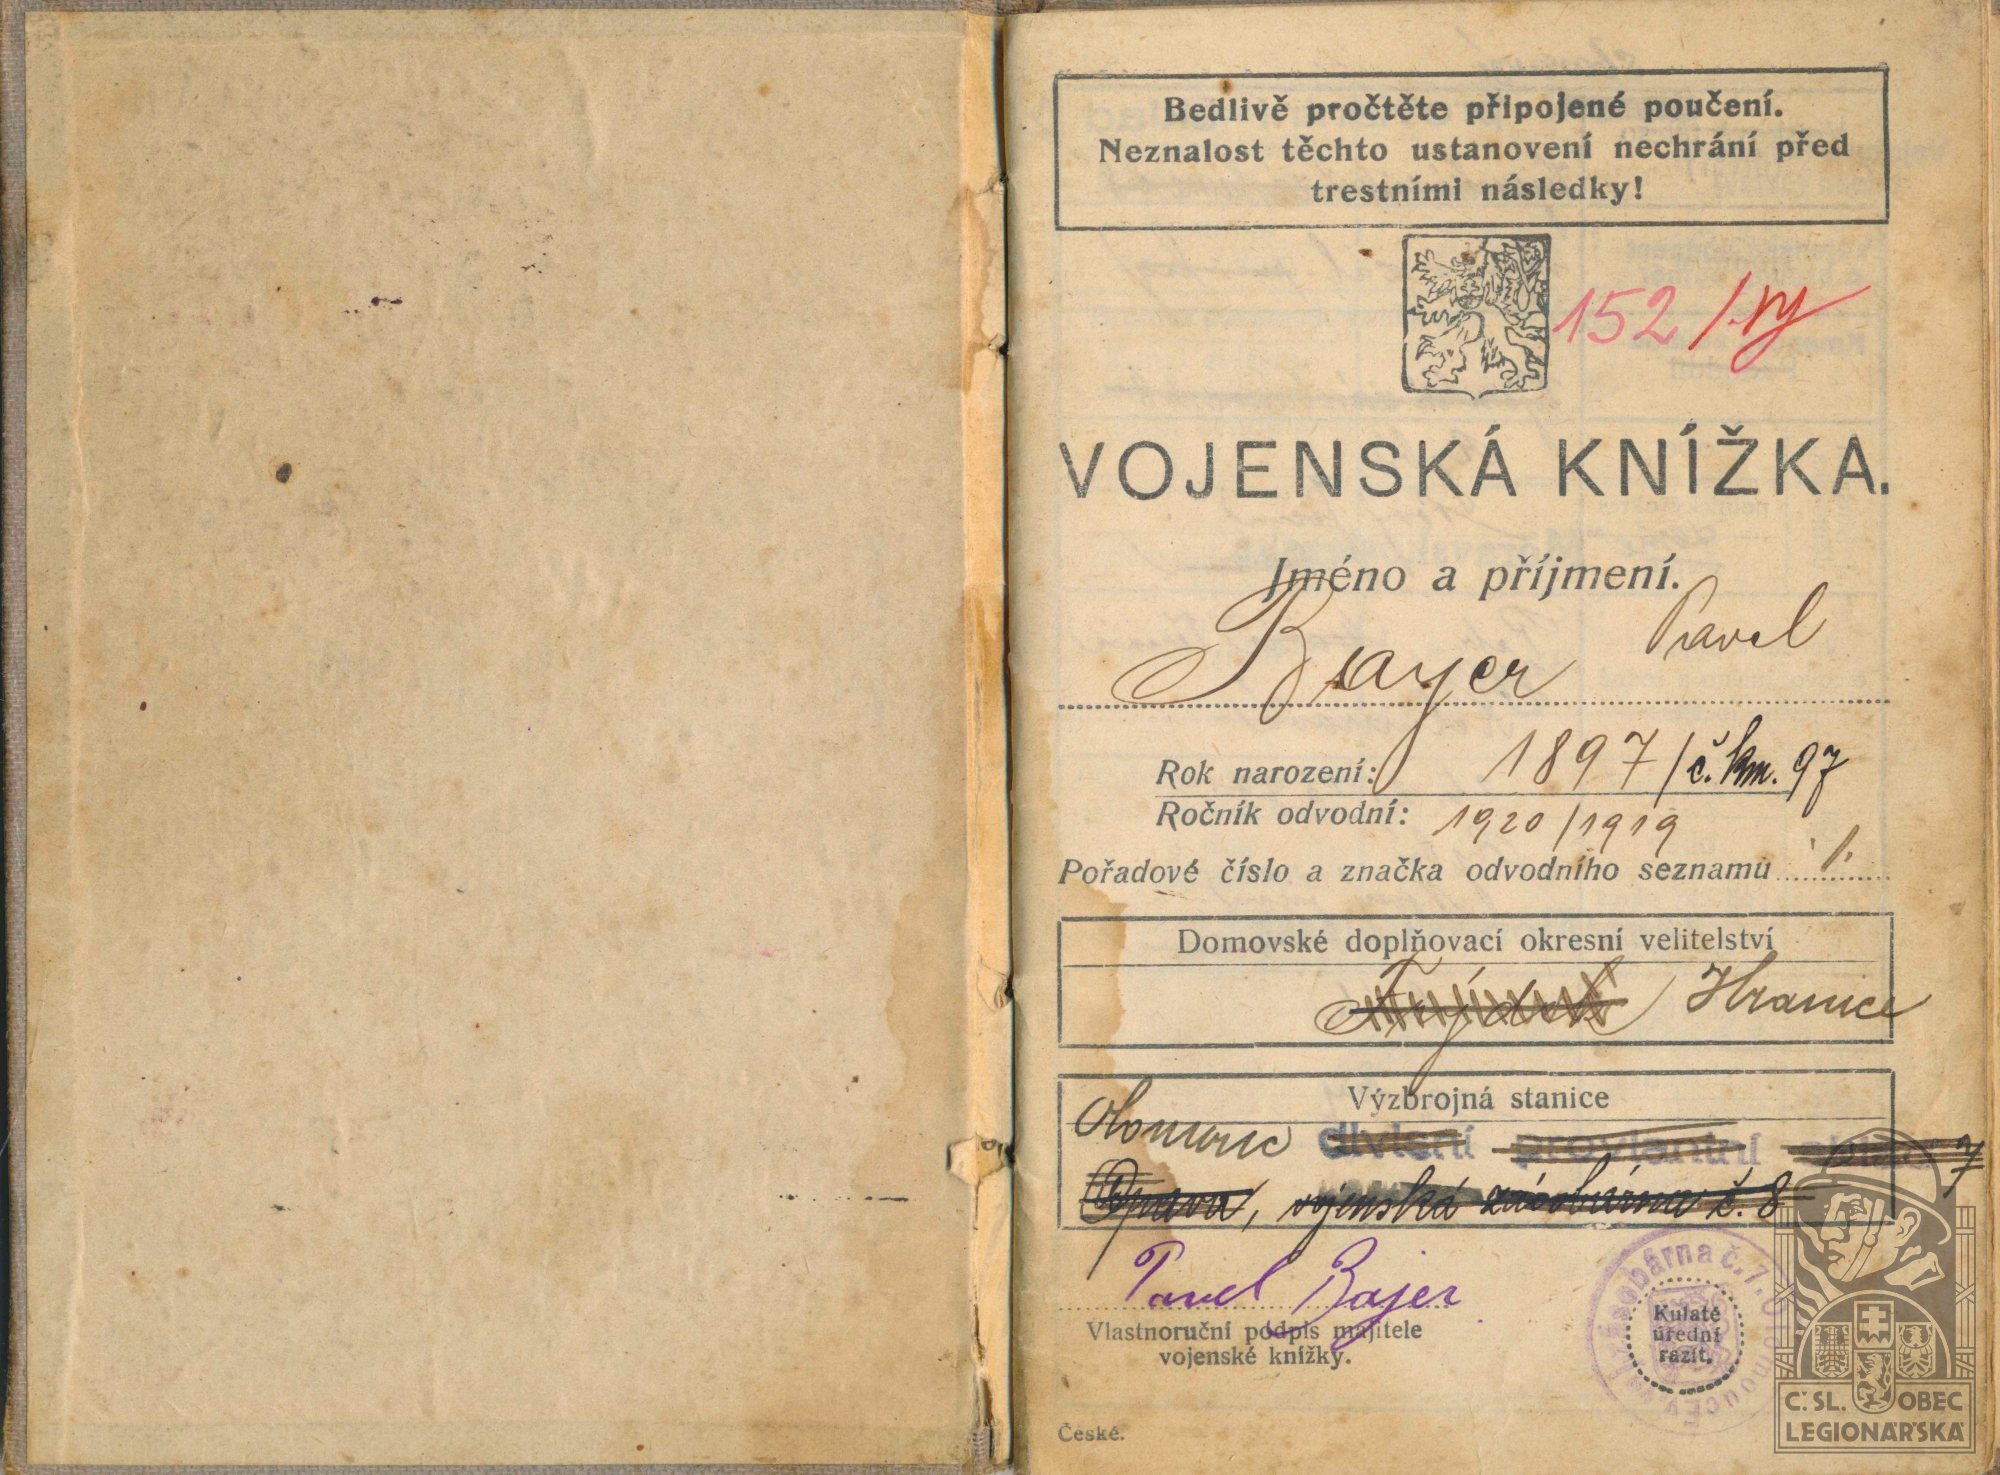 Bedlivě pročtěte připojené poučení.
Neznalost těchto ustanovení nechrání před
trestními následky!
152/
VOJENSKÁ KNÍŽKA.
Jméno a příjmení.
Bayer Pavel
Rok narození: 1897/č. km. 97
Ročník odvodní: 1920/1919
Pořadové číslo a značka odvodního seznamu 1.
Domovské doplňovací okresní velitelství
Frýdek Hranice
Výzbrojná stanice
Olomouc divisní proviantní 7
Opava, vojenská zásobárna č. 8
Pavel Bajer
Vlastnoruční podpis majitele
vojenské knížky.
zásobárna č. 7.
Kulaté
úřední
razít.
České.
Č SL. OBEC
LEGIONÁŘSKÁ